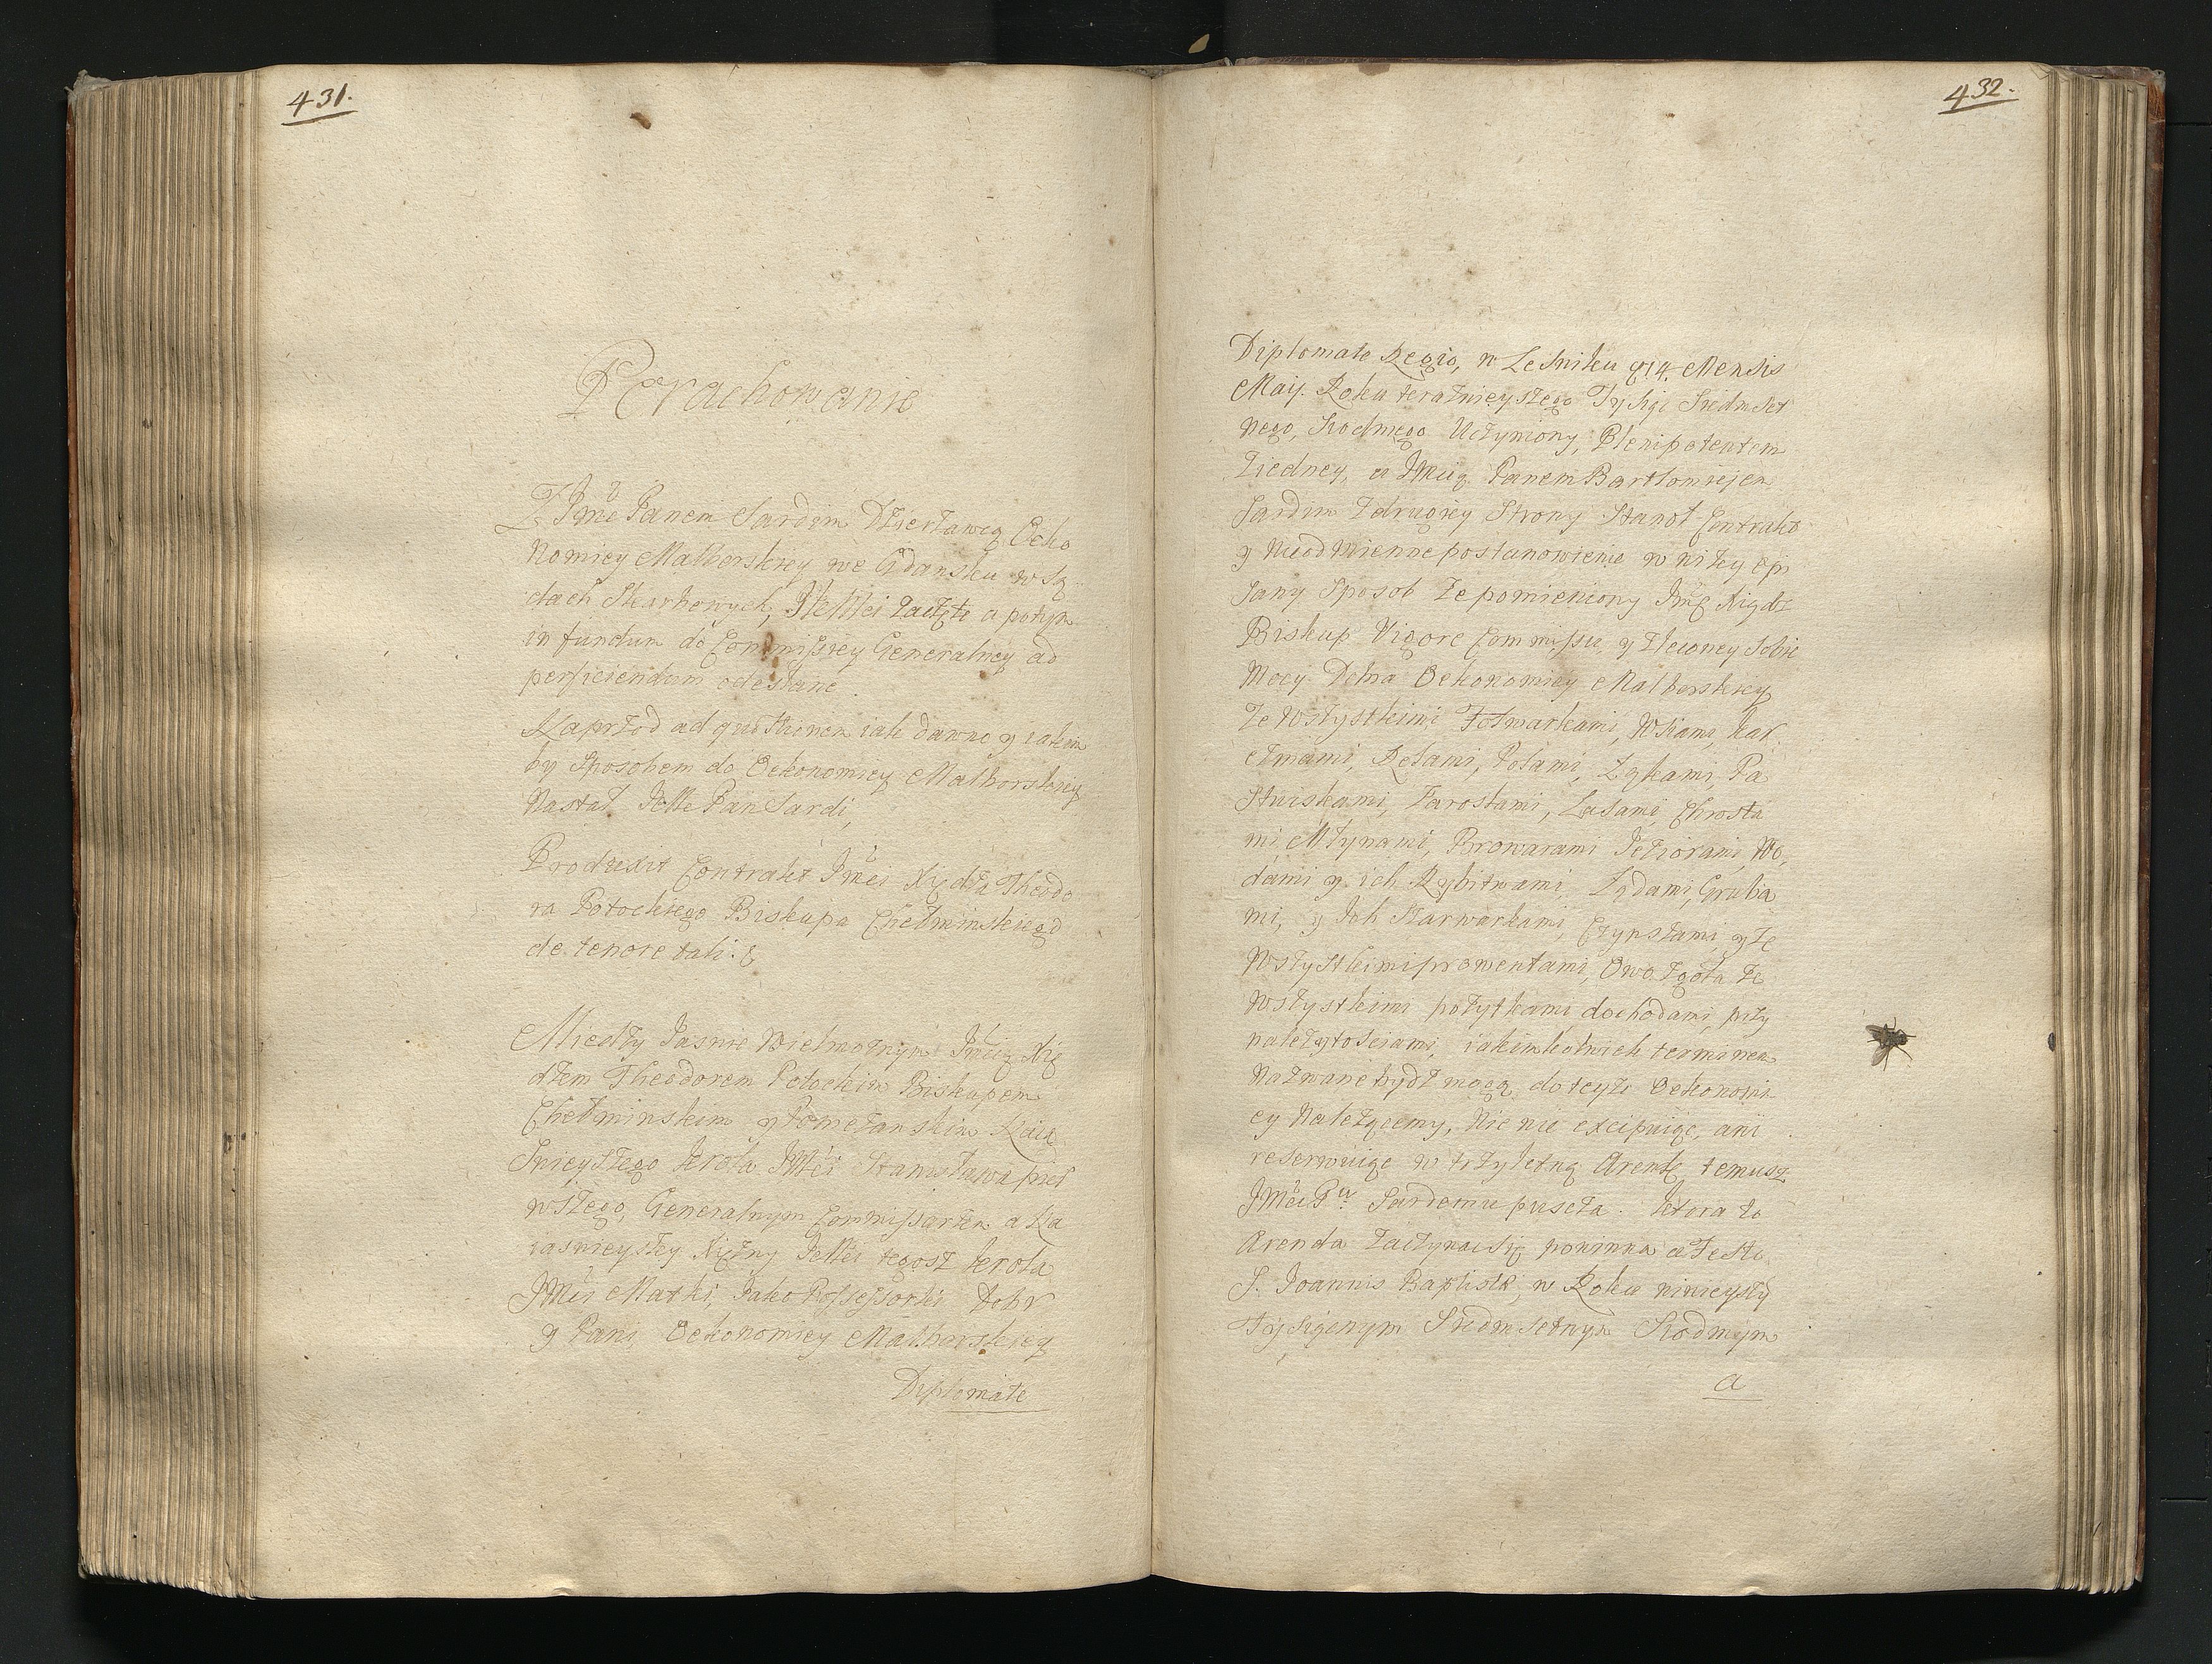 431.
Porachowanie
Z Jmć Panem Sardim Dzierżawcą Oeko
Nomiey Malborskiey we Gdansku w Są
dach Skarbowych, JKMći zaczęte a potym
in fundum do Commissiey Generalney ad
perficiendum odesłane.
Naprzod ad quæstionem iak dawno y iakim
by Sposobem do Oekonomiey Malborskiey
Nastał JMć Pan Sardi,
Produxit Contrakt Jmći Xiędza Theodo
ra Potockiego Biskupa Chełminskiego
de tenore tali. &
Miedzy Jasnie Wielmoznym Jmćią Xię
dzem Theodorem Potockim Biskupem
Chełminskim y Pomezanskim Naia
Snieyszego Krola JMći Stanisława pier
wszego, Generalnym Commissarzem a Na
iasnieyszey Xiężny JeMći tegosz Krola
JMći Matki, Jako Possessorki Dobr
y Pani Oekonomiey Malborskiey
Diplomate
432.
Diplomate Regio, w Lesniku 14. Mensis
Maij. Roku teraznieyszego Tysiąc Siedmset
nego, Siodmego Uczyniony, Plenipotentem
z iedney, a Jmcią Panem Bartłomiejem
Sardim z drugiey Strony Stanoł Contrakt
y Nieodmienne postanowienie w niżey opi
sany Sposob że pomieniony Jmć Xiądz
Biskup Vigore Commissu y zleconey Sobie
Mocy Dobra Oekonomiey Malborskiey
ze Wszystkimi Folwarkami, Wsiami, kar
czmami, Rolami, Polami, Łąkami, Pa
stwiskami, Zarostami, Lasami, Chrosta
mi, Młynami, Browarami Jeziorami, Wo,
dami y ich Rybitwami, Zędami, Gruba
mi, y Ich Szarwarkami, Czynszami, y ze
Wszystkimi prowentami, Owo zgoła ze
wszystkimi pożytkami dochodami, przy
należytosciami, iakimkolwiek terminem
Nazwane bydz mogą, do teyże Oekonomi
ey Należącemy, Nic nie excipuiąc, ani
reserwuiąc w trzyletną Arendę temusz
JMći Pu Sardemu puscza. ktora to
Arenda zaczynac się powinna a Festo
S. Joannis Baptistæ, w Roku ninieyszy
Tysiącnym Siedmsetnym Siodmym
a